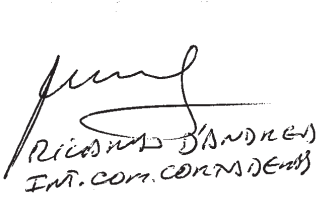 RICARDO D'ANDREA
INT. COM. CORTADERAS